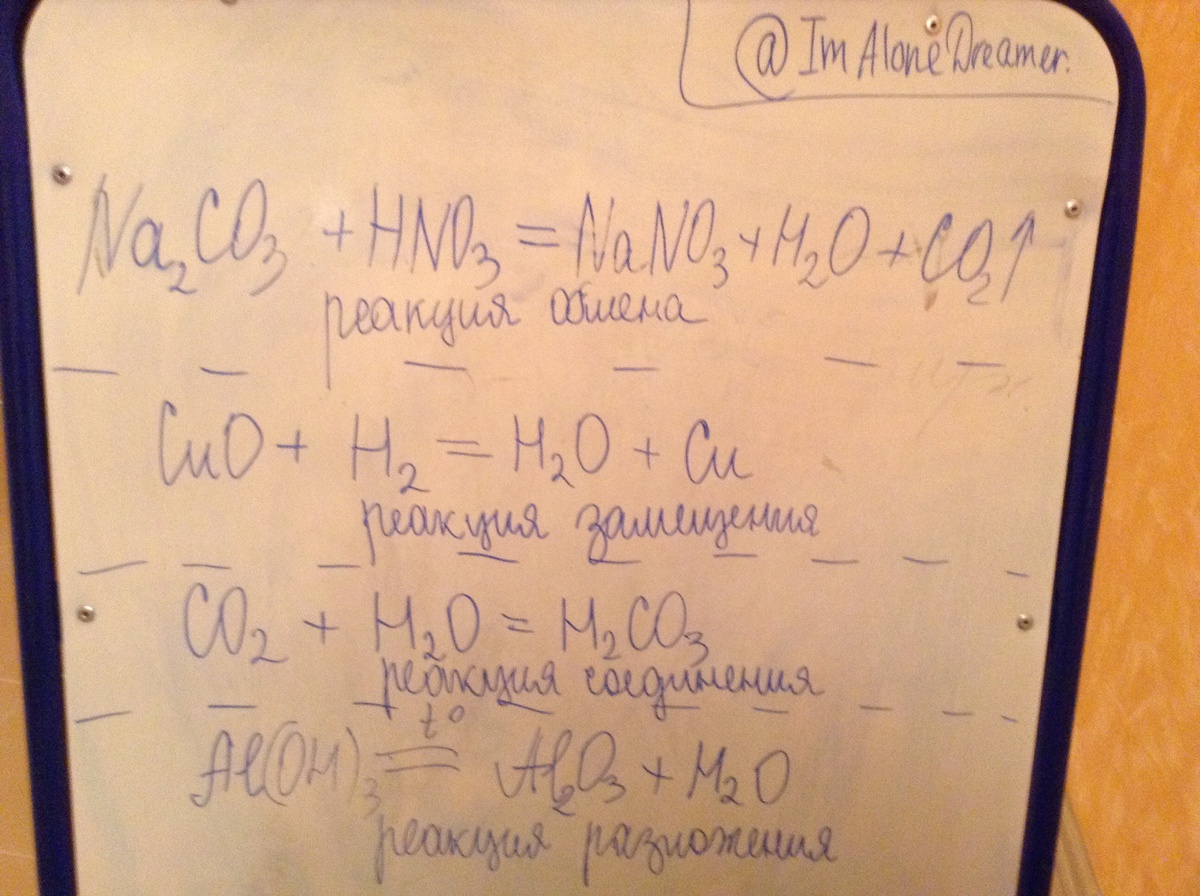 @ImAloneDreamer.
Na₂CO₃ + HNO₃ = NaNO₃ + H₂O + CO₂↑
реакция обмена
CuO + H₂ = H₂O + Cu
реакция замещения
CO₂ + H₂O = H₂CO₃
реакция соединения
t°
Al(OH)₃ = Al₂O₃ + H₂O
реакция разложения